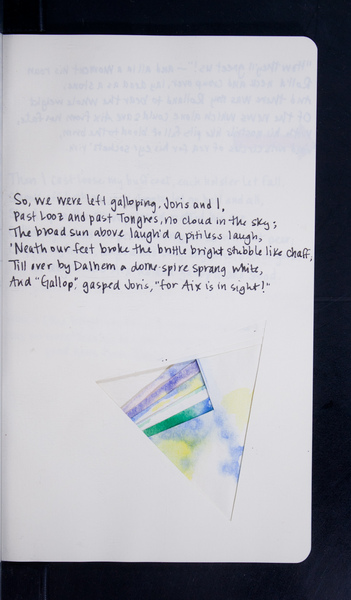 So, we were left galloping, Joris and I,
Past Looz and past Tongres, no cloud in the sky;
The broad sun above laugh'd a pitiless laugh,
'Neath our feet broke the brittle bright stubble like chaff;
Till over by Dalhem a dome-spire sprang white,
And "Gallop," gasped Joris, "for Aix is in sight!"